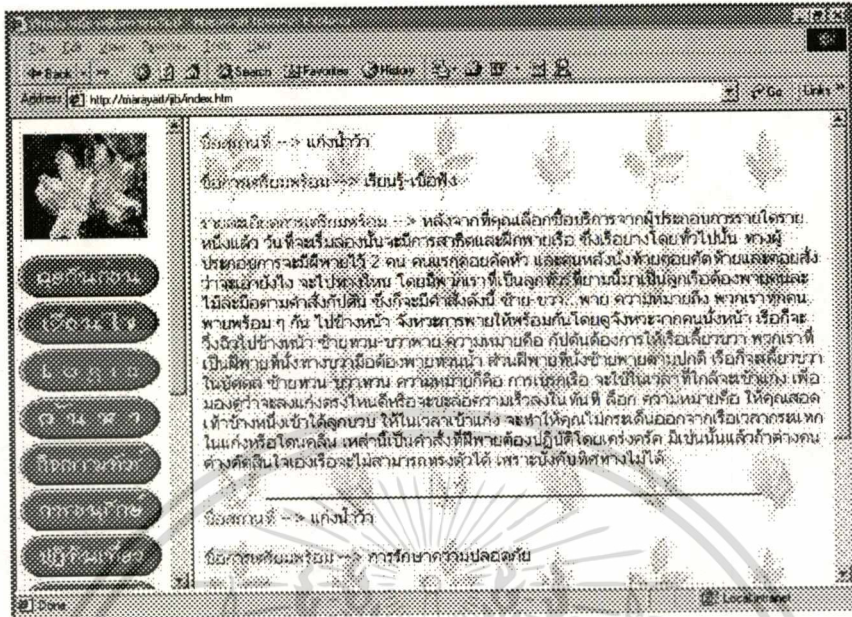 Back
Search Favorites History
Address http://marayad/jib/index.htm Go Links »
ชื่อสถานที่ --> แก่งน้ำว้า
ชื่อการเตรียมพร้อม --> เรียนรู้-เชื่อฟัง
รายละเอียดการเตรียมพร้อม --> หลังจากที่คุณเลือกซื้อบริการจากผู้ประกอบการรายใดราย
หนึ่งแล้ว วันที่จะเริ่มล่องนั้นจะมีการสาธิตและฝึกพายเรือ ซึ่งเรือยางโดยทั่วไปนั้น ทางผู้
ประกอบการจะมีฝีพายไว้ 2 คน คนแรกคอยคัดหัว และคนหลังนั่งท้ายคอยคัดท้ายและคอยสั่ง
ว่าจะเอายังไง จะไปทางไหน โดยมีพวกเราที่เป็นลูกทัวร์ที่ยามนี้มาเป็นลูกเรือต้องพายคนละ
ไม้ละมือตามคำสั่งกัปตัน ซึ่งก็จะมีคำสั่งดังนี้ ซ้าย-ขวา...พาย ความหมายถึง พวกเราทุกคน
พายพร้อม ๆ กัน ไปข้างหน้า จังหวะการพายให้พร้อมกันโดยดูจังหวะจากคนนั่งหน้า เรือก็จะ
วิ่งฉิวไปข้างหน้า ซ้ายทวน-ขวาพาย ความหมายคือ กัปตันต้องการให้เรือเลี้ยวขวา พวกเราที่
เป็นฝีพายที่นั่งทางขวามือต้องพายทวนน้ำ ส่วนฝีพายที่นั่งซ้ายพายตามปกติ เรือก็จะเลี้ยวขวา
ในบัดดล ซ้ายทวน-ขวาทวน ความหมายก็คือ การเบรกเรือ จะใช้ในเวลาที่ใกล้จะเข้าแก่ง เพื่อ
มองดูว่าจะลงแก่งตรงไหนดีหรือจะชะลอความเร็วลงในทันที ล็อก ความหมายคือ ให้คุณสอด
เท้าข้างหนึ่งเข้าใต้ลูกบวบ ให้ในเวลาเข้าแก่ง จะทำให้คุณไม่กระเด็นออกจากเรือเวลากระแทก
ในแก่งหรือโดนคลื่น เหล่านี้เป็นคำสั่งที่ฝีพายต้องปฏิบัติโดยเคร่งครัด มิเช่นนั้นแล้วถ้าต่างคน
ต่างตัดสินใจเองเรือจะไม่สามารถทรงตัวได้ เพราะบังคับทิศทางไม่ได้
ชื่อสถานที่ --> แก่งน้ำว้า
ชื่อการเตรียมพร้อม --> การรักษาความปลอดภัย
Done Local intranet